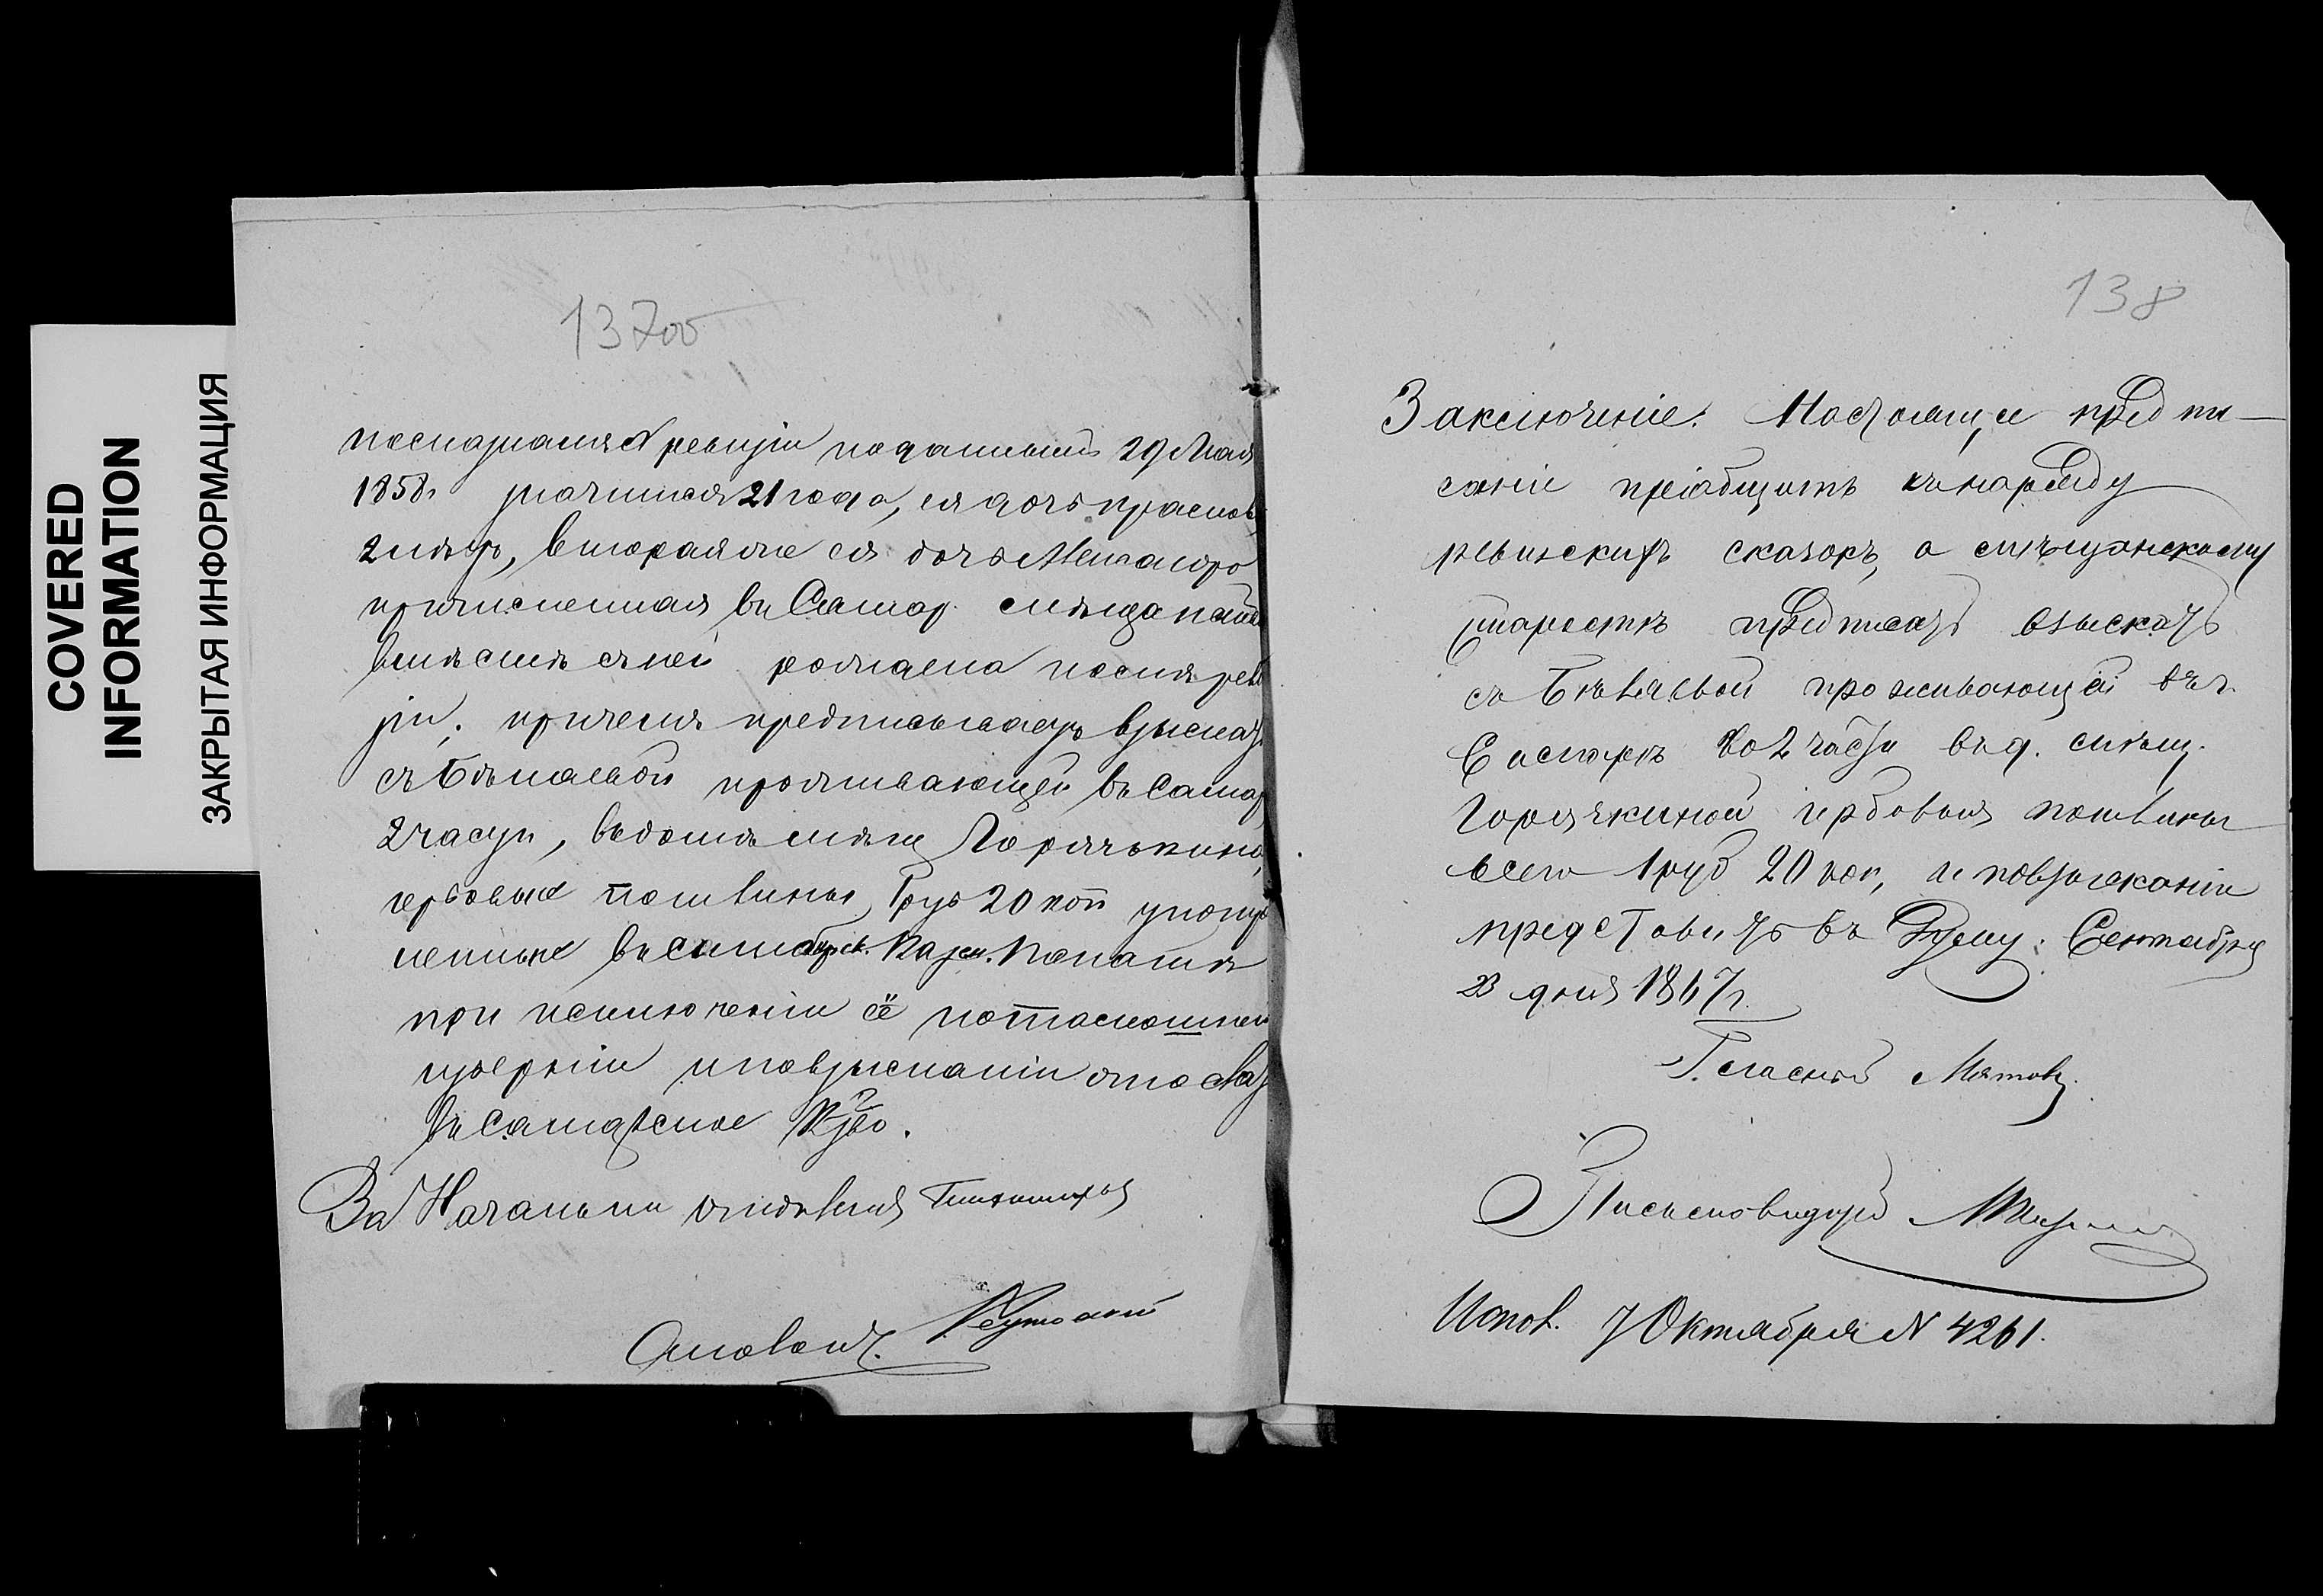 COVERED
INFORMATION
ЗАКРЫТАЯ ИНФОРМАЦИЯ
137об
ревизіи поданной 29 Мая
1858г. значится 21 года, ея дочь
2 лѣтъ, вторая же ея дочь Александра
причисленная въ Самар. мѣщан
вмѣстѣ съ ней рождена послѣ реви
зіи; при чемъ предписываетъ взыскать
съ Бѣляевой проживающей въ Самар
2 части, въ домѣ мѣщ Горячькина,
гербовые пошлины 1 руб 20 коп упот
ленные въ Симбирск. Казен. Палатѣ
при исключеніи её по тамошней
губерніи и по взысканіи отослать
въ Самарское Кзво.
За Начальника Отдѣленія
138
Заключеніе: Настоящее предпи-
саніе пріобщить къ наряду
ревизскихъ сказокъ, а мѣщанскому
старостѣ предписать взыскать
съ Бѣляевой проживающей въ г.
Самарѣ во 2 части въ д. мѣщ.
Горячкиной гербовыя пошлины
всего 1 руб 20 коп, и по взысканіи
представить въ Думу. Сентября
23 дня 1867 г.
Гласный
Письмоводитель
Испол. 7 Октября № 4261.